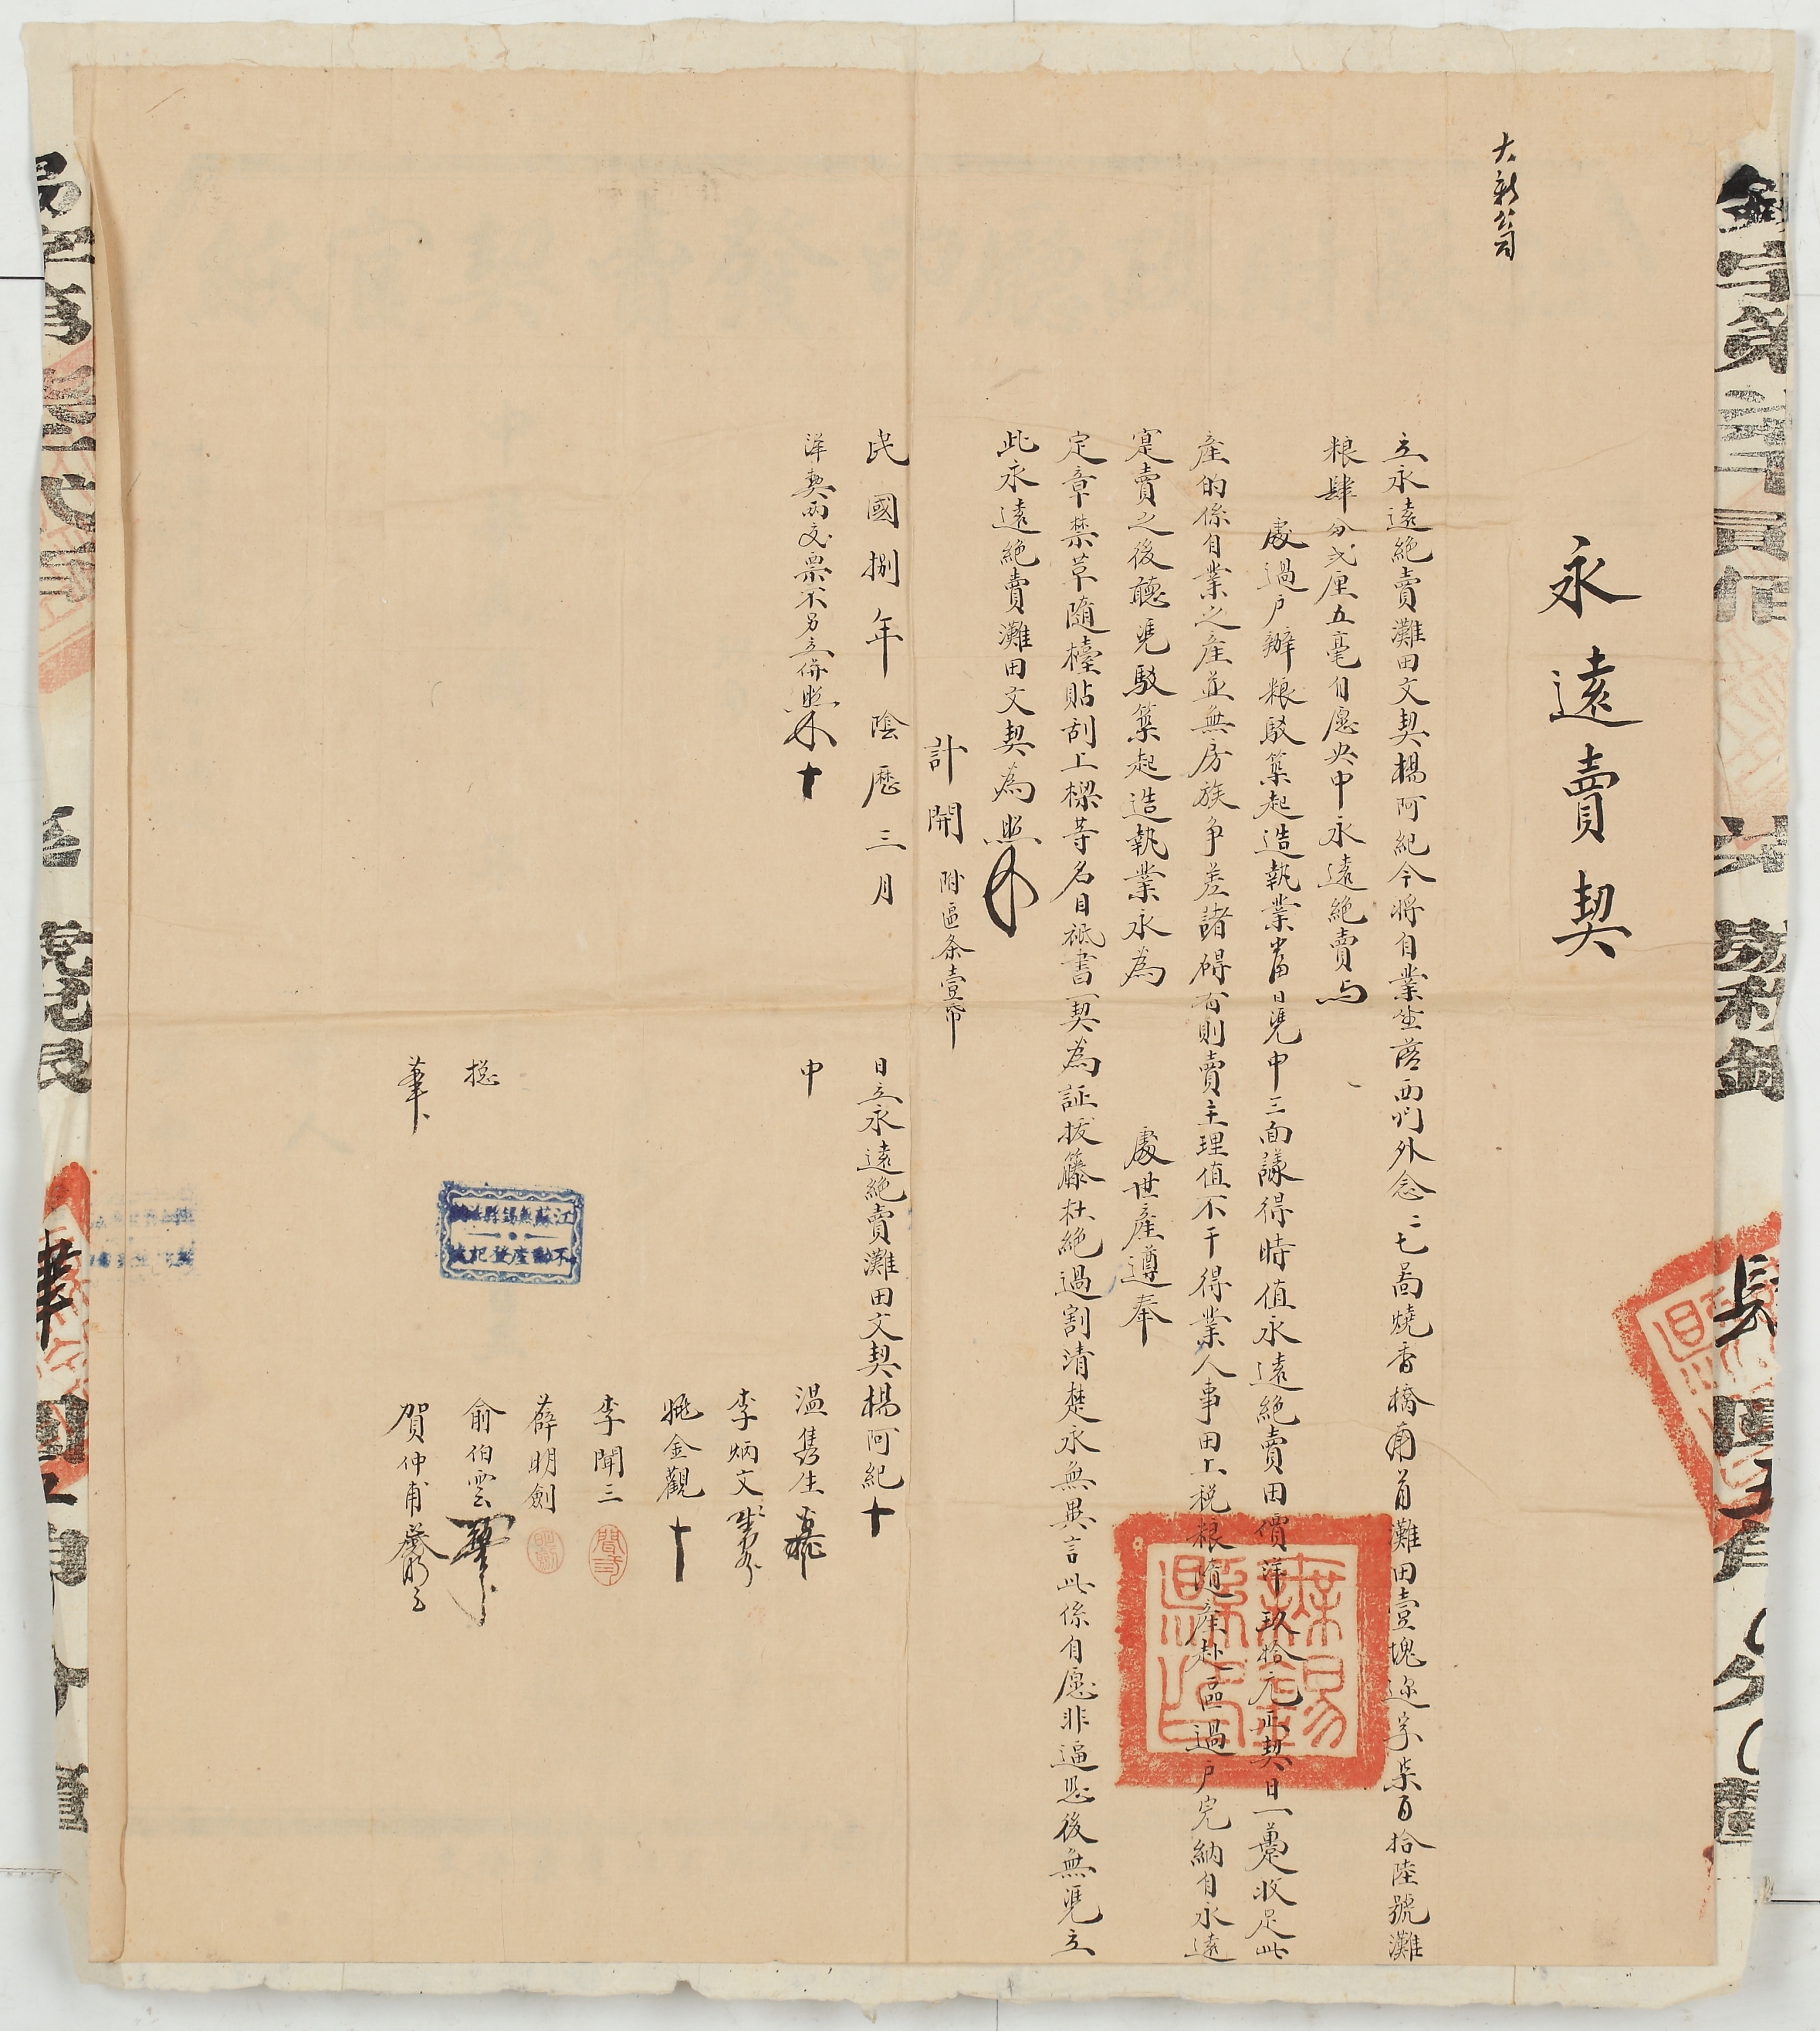 永遠賣契
大新翁
立永遠絕賣灘田文契楊阿紀今將自業坐落西門外念二七啚燒香橋角首灘田壹塊迩字柒百拾陸號灘
粮肆分弍厘五毫自愿央中永遠絕賣与
處過戶辦粮駁築起造執業當日凴中三面議得時值永遠絕賣田價洋玖拾元正契日一躉收足此
產的係自業之產並無房族爭差諸碍有則賣主理值不干得業人事田上稅粮隨產赴區過戶完納自永遠
寔賣之後聽凴駁築起造執業永為
處世產遵奉
定章禁革隨檯貼刮上樑等名目祗書一契為証拔籐杜絕過割清楚永無異言此係自愿非逼恐後無凴立
此永遠絕賣灘田文契為照
計開 附區条壹帋
民國捌年陰歷三月
日立永遠絕賣灘田文契楊阿紀十
洋契兩交票不另立併照 十
中
溫雋生
李炳文
姚金觀 十
李聞三
薛明劍
捴
俞伯雲
筆
賀仲甫
江蘇無錫縣
不動產登記
無錫縣印